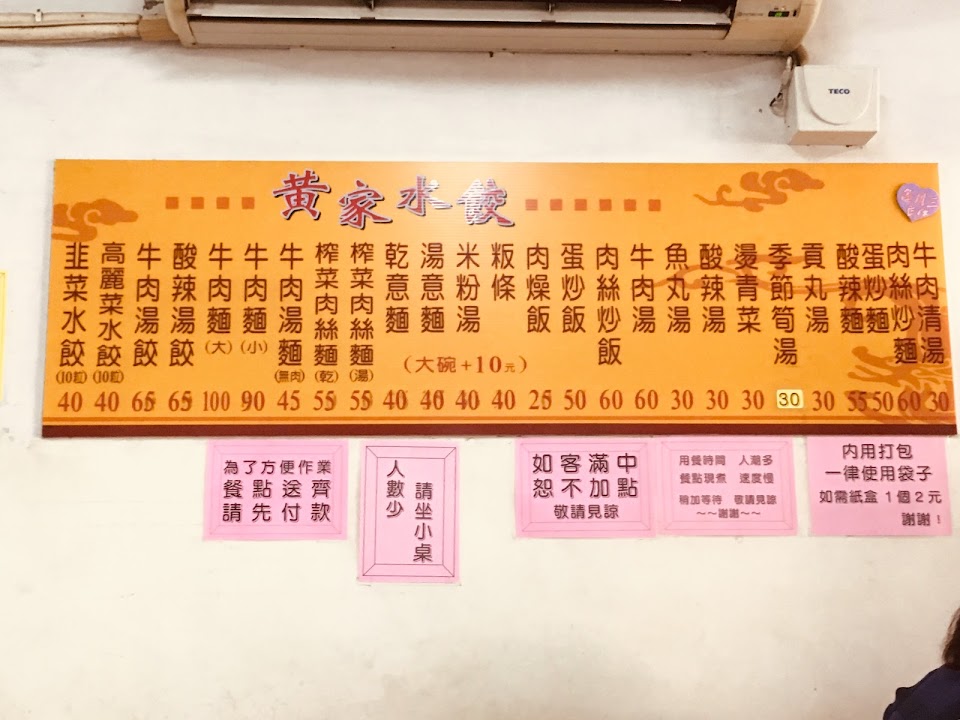 TECO
黃家水餃
韭菜水餃(10粒) 40
高麗菜水餃(10粒) 40
牛肉湯餃 65
酸辣湯餃 65
牛肉麵(大) 100
牛肉麵(小) 90
牛肉湯麵(無肉) 45
榨菜肉絲麵(乾) 55
榨菜肉絲麵(湯) 55
乾意麵 40
湯意麵 40
米粉湯 40
粄條 40
(大碗+10元)
肉燥飯 25
蛋炒飯 50
肉絲炒飯 60
牛肉湯 60
魚丸湯 30
酸辣湯 30
湯青菜 30
季節筍湯 30
貢丸湯 30
酸辣麵 55
蛋炒麵 50
肉絲炒麵 60
牛肉清湯 30
為了方便作業
餐點送齊
請先付款
人數少
請坐小桌
如客滿中
恕不加點
敬請見諒
用餐時間 人潮多
餐點現煮 速度慢
稍加等待 敬請見諒
～～謝謝～～
內用打包
一律使用袋子
如需紙盒1個2元
謝謝！